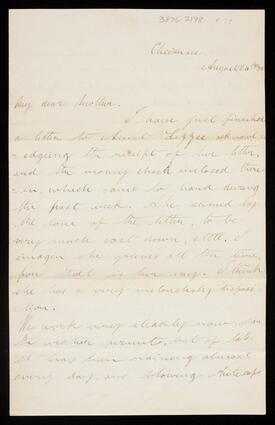 3876 2898
Cheevasse
August 26th
My dear Mother.
I have just finished
a letter to Aunt Lizzee acknowl
=edging the receipt of her letter,
and the money check inclosed there
=in, which came to hand during
the past week. She seemed by
the tone of the letter, to be
very much cast down, still, I
imagin she grieves all the time,
for that is her way. I think
she has a very melancholy disposi
-tion.
We work very steadily now, when
the weather permits, but of late
it has been raining almost
every day, and blowing whitecaps